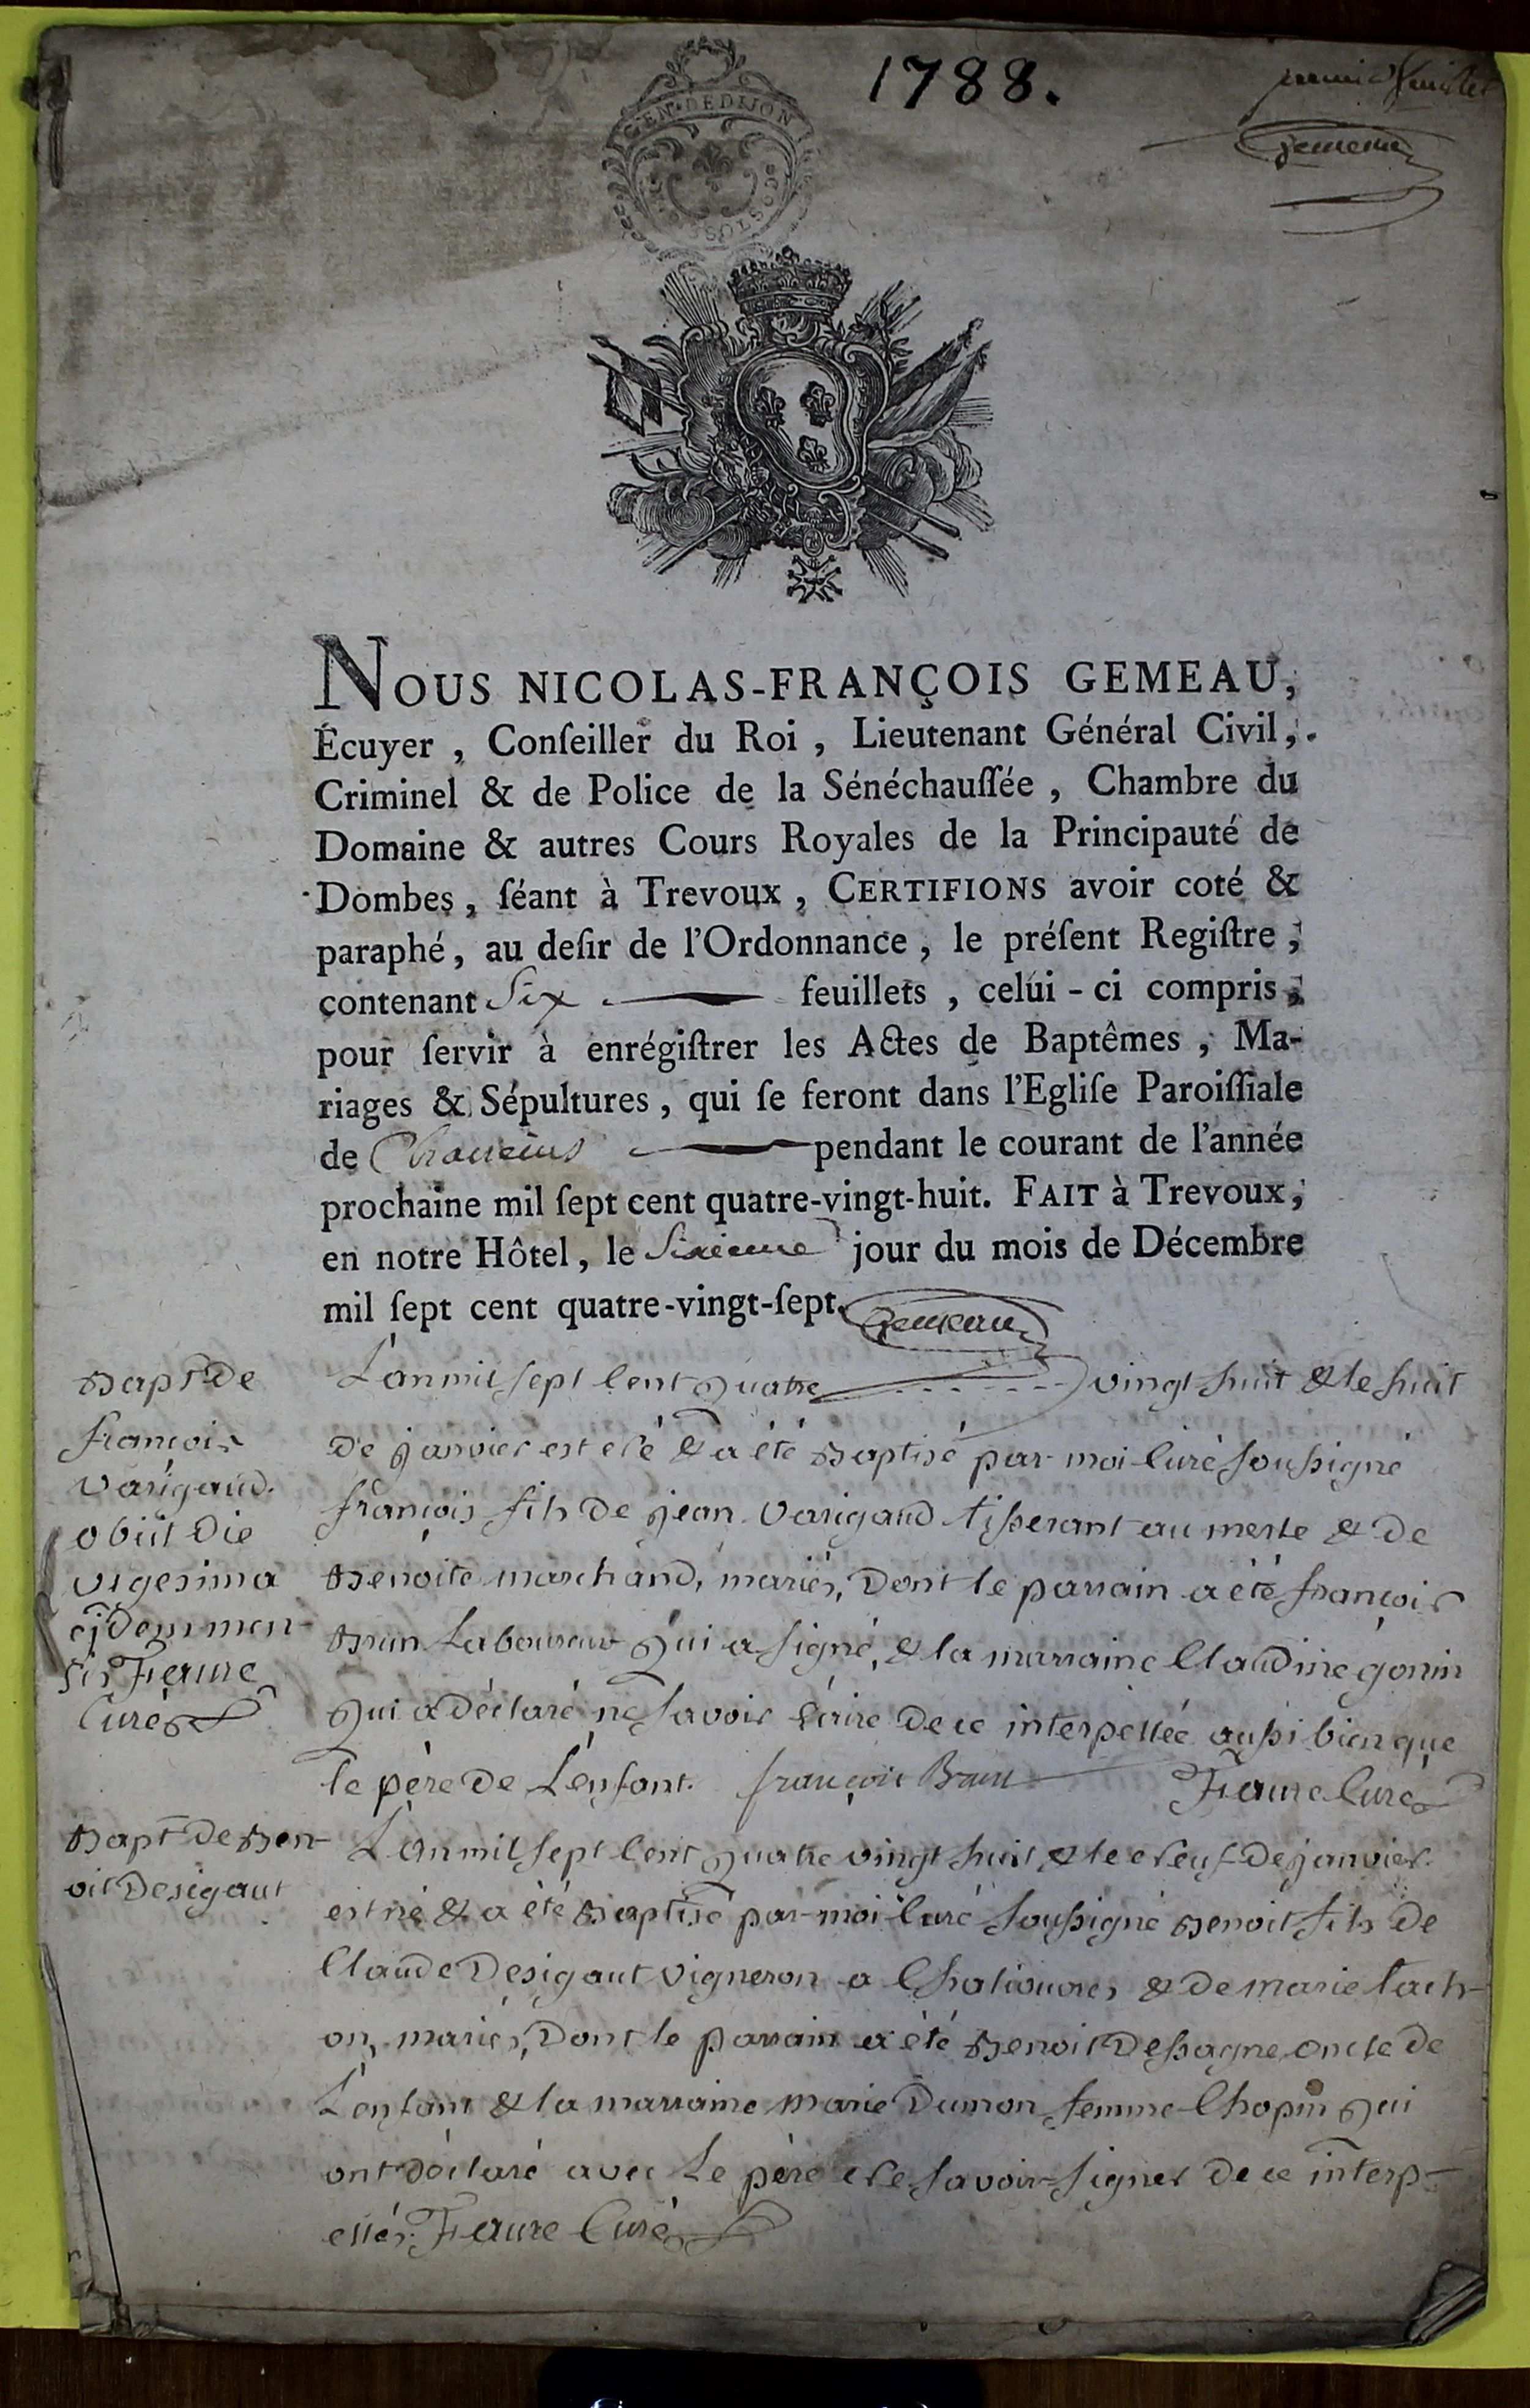 1788.
premier feuillet
Gemeau
GEN. DE DIJON
SOLS
NOUS NICOLAS-FRANÇOIS GEMEAU,
Écuyer , Conſeiller du Roi , Lieutenant Général Civil,
Criminel & de Police de la Sénéchauſſée , Chambre du
Domaine & autres Cours Royales de la Principauté de
Dombes , ſéant à Trevoux , CERTIFIONS avoir coté &
paraphé, au deſir de l'Ordonnance , le préſent Regiſtre ,
contenant Six feuillets , celui-ci compris ,
pour ſervir à enrégiſtrer les Actes de Baptêmes , Ma-
riages & Sépultures , qui ſe feront dans l'Egliſe Paroiſſiale
de Chaneins pendant le courant de l'année
prochaine mil ſept cent quatre-vingt-huit. FAIT à Trevoux,
en notre Hôtel, le Sixieme jour du mois de Décembre
mil ſept cent quatre-vingt-ſept. Gemeau
Bapt de
françois
Varigaud.
obiit die
vigesima
ejdem men-
sis Feaure
Curé
L'an mil sept Cent quatre vingt huit & le huit
De janvier est né & a été Baptisé par moi Curé soussigné
françois fils De jean Varigaud tisserant au merle & De
Benoite marchand, mariés, Dont le parrain a été françois
Brun Laboureur qui a signé, & la marraine Claudine gonin
qui a Déclaré ne savoir écrire De ce interpellée aussi bien que
le père De L'enfant. françois Brun Feaure Curé
Bapt De Ben-
oit Desigaut
L'an mil sept Cent quatre vingt huit & le neuf De janvier
est né & a été Baptisé par moi Curé soussigné Benoit fils De
Claude Desigaut vigneron a & De marie tach-
on, mariés, Dont le parrain a été Benoit Dessagne oncle De
L'enfant & la marraine marie Dumon femme Chopin qui
ont Déclaré avec Le père ne savoir signer De ce interp-
ellés. Feaure Curé